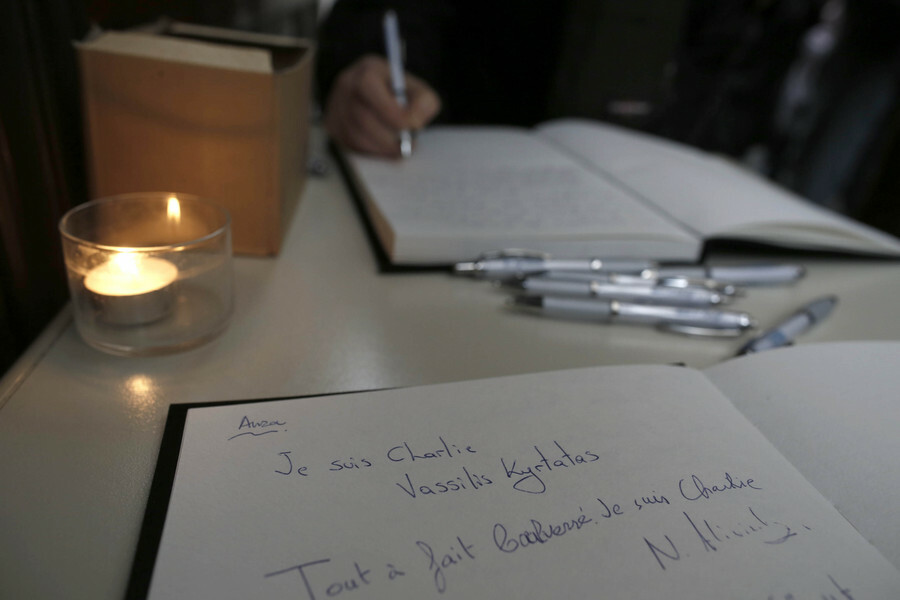 Je suis Charlie
Vassilis Kyrtatas
Tout à fait bouleversé. Je suis Charlie
N.